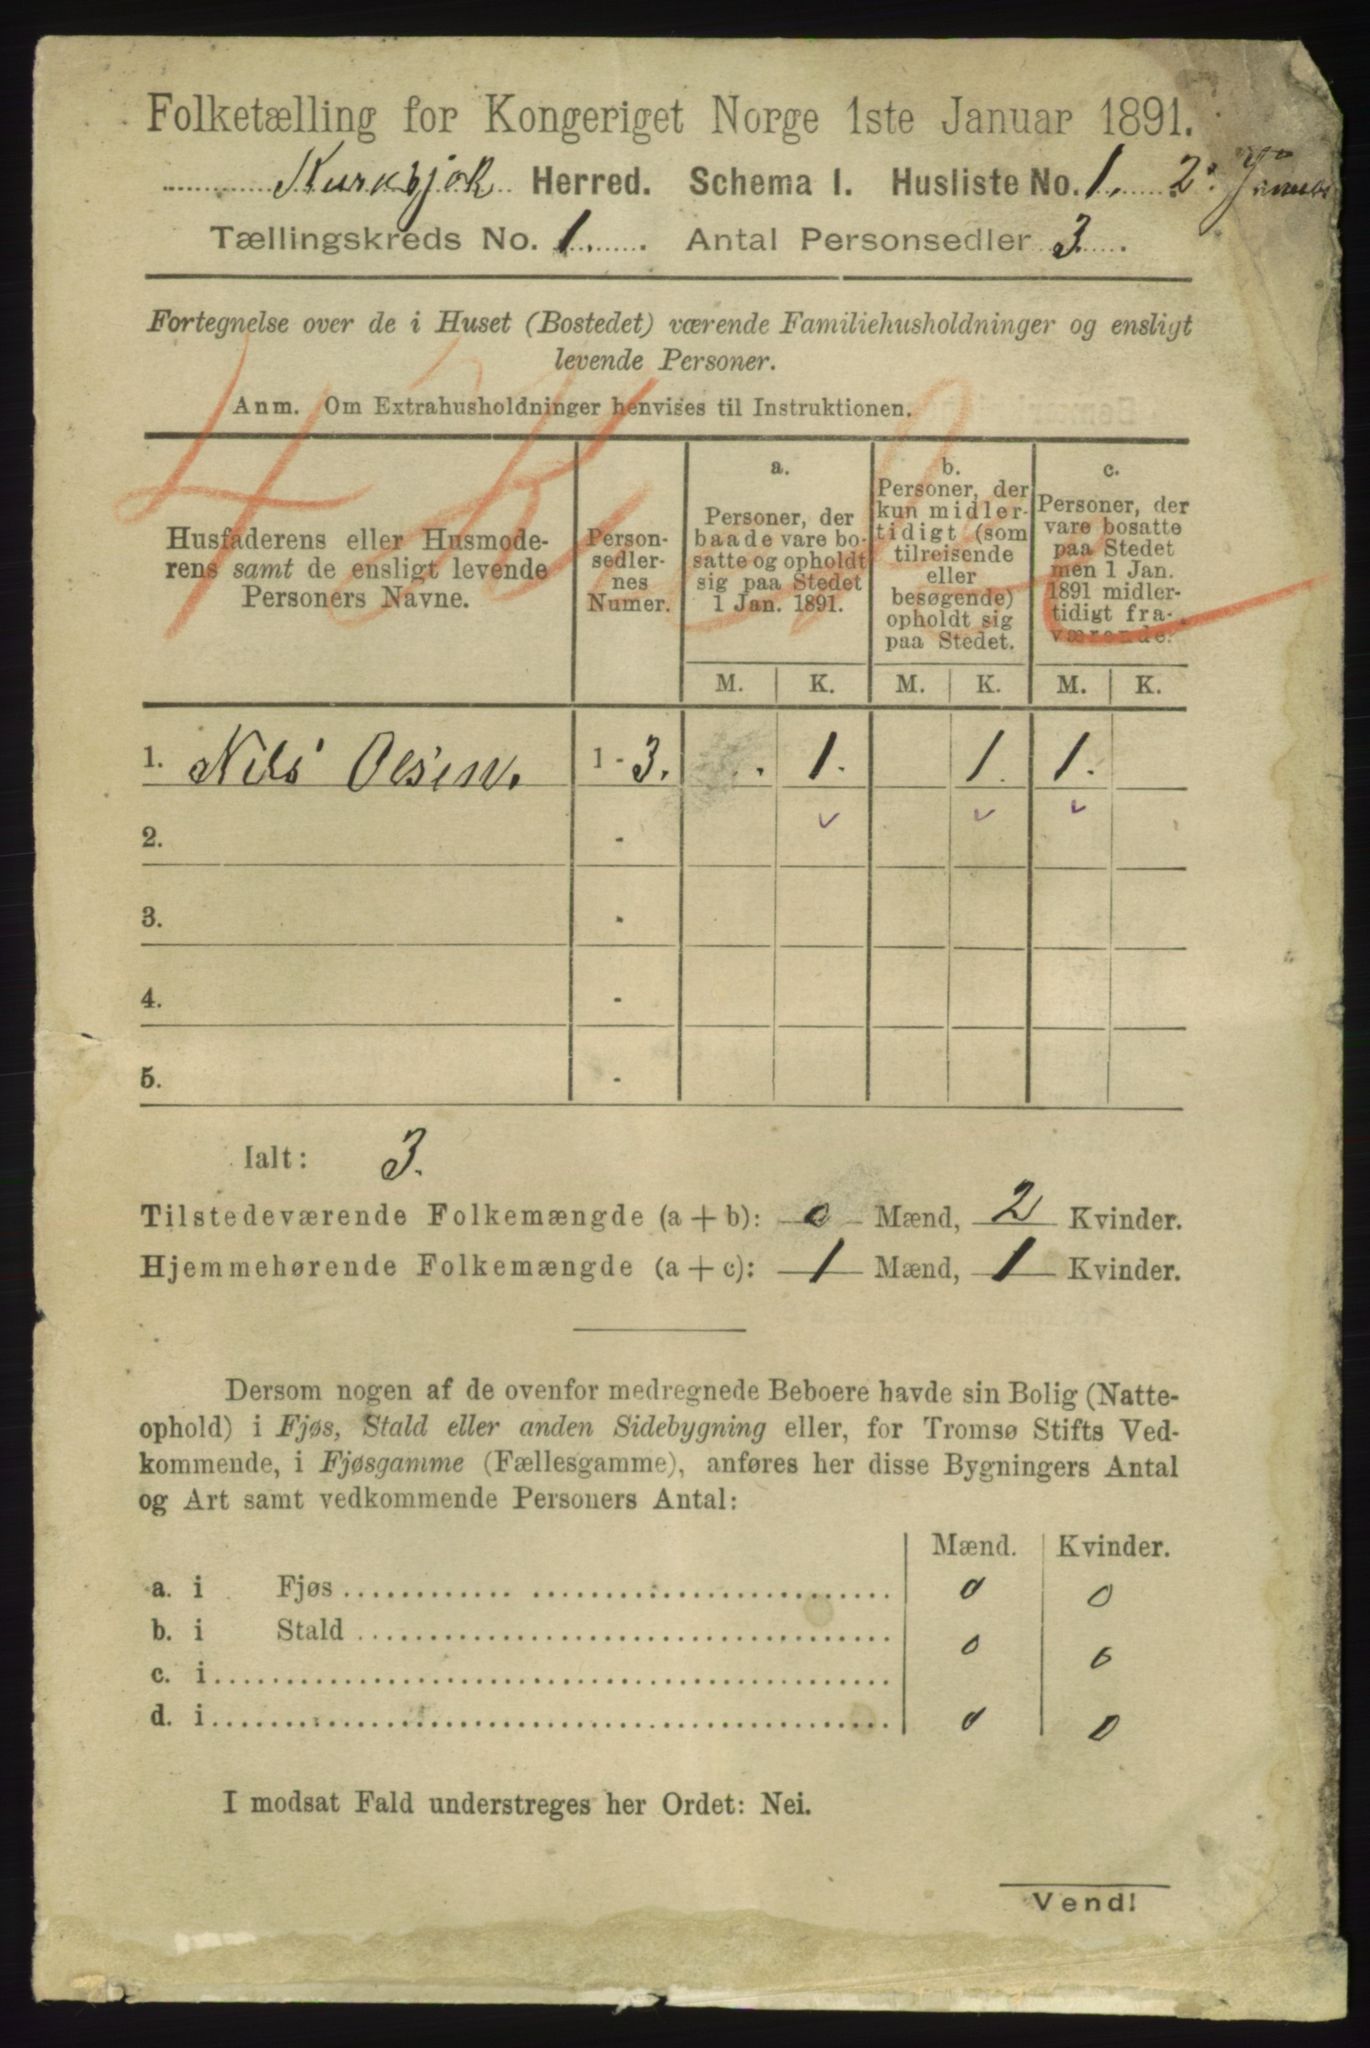 Folketælling for Kongeriget Norge 1ste Januar 1891.
Herred. Schema I. Husliste No. 1. 2
Tællingskreds No. 1. Antal Personsedler 3.
Fortegnelse over de i Huset (Bostedet) værende Familiehusholdninger og ensligt
levende Personer.
Anm. Om Extrahusholdninger henvises til Instruktionen.
Husfaderens eller Husmode-
rens samt de ensligt levende
Personers Navne.
Person-
sedler-
nes
Numer.
a.
Personer, der
baade vare bo-
satte og opholdt
sig paa Stedet
1 Jan. 1891.
b.
Personer, der
kun midler-
tidigt (som
tilreisende
eller
besøgende)
opholdt sig
paa Stedet.
c.
Personer, der
vare bosatte
paa Stedet
men 1 Jan.
1891 midler-
tidigt fra-
værende.
M. K. M. K. M. K.
1. Nils Olsen. 1 - 3. 1. 1. 1.
2. -
3. -
4. -
5. -
Ialt: 3.
Tilstedeværende Folkemængde (a + b): 0 Mænd, 2 Kvinder.
Hjemmehørende Folkemængde (a + c): 1 Mænd, 1 Kvinder.
Dersom nogen af de ovenfor medregnede Beboere havde sin Bolig (Natte-
ophold) i Fjøs, Stald eller anden Sidebygning eller, for Tromsø Stifts Ved-
kommende, i Fjøsgamme (Fællesgamme), anføres her disse Bygningers Antal
og Art samt vedkommende Personers Antal:
Mænd. Kvinder.
a. i Fjøs 0 0
b. i Stald 0 0
c. i
d. i 0 0
I modsat Fald understreges her Ordet: Nei.
Vend!